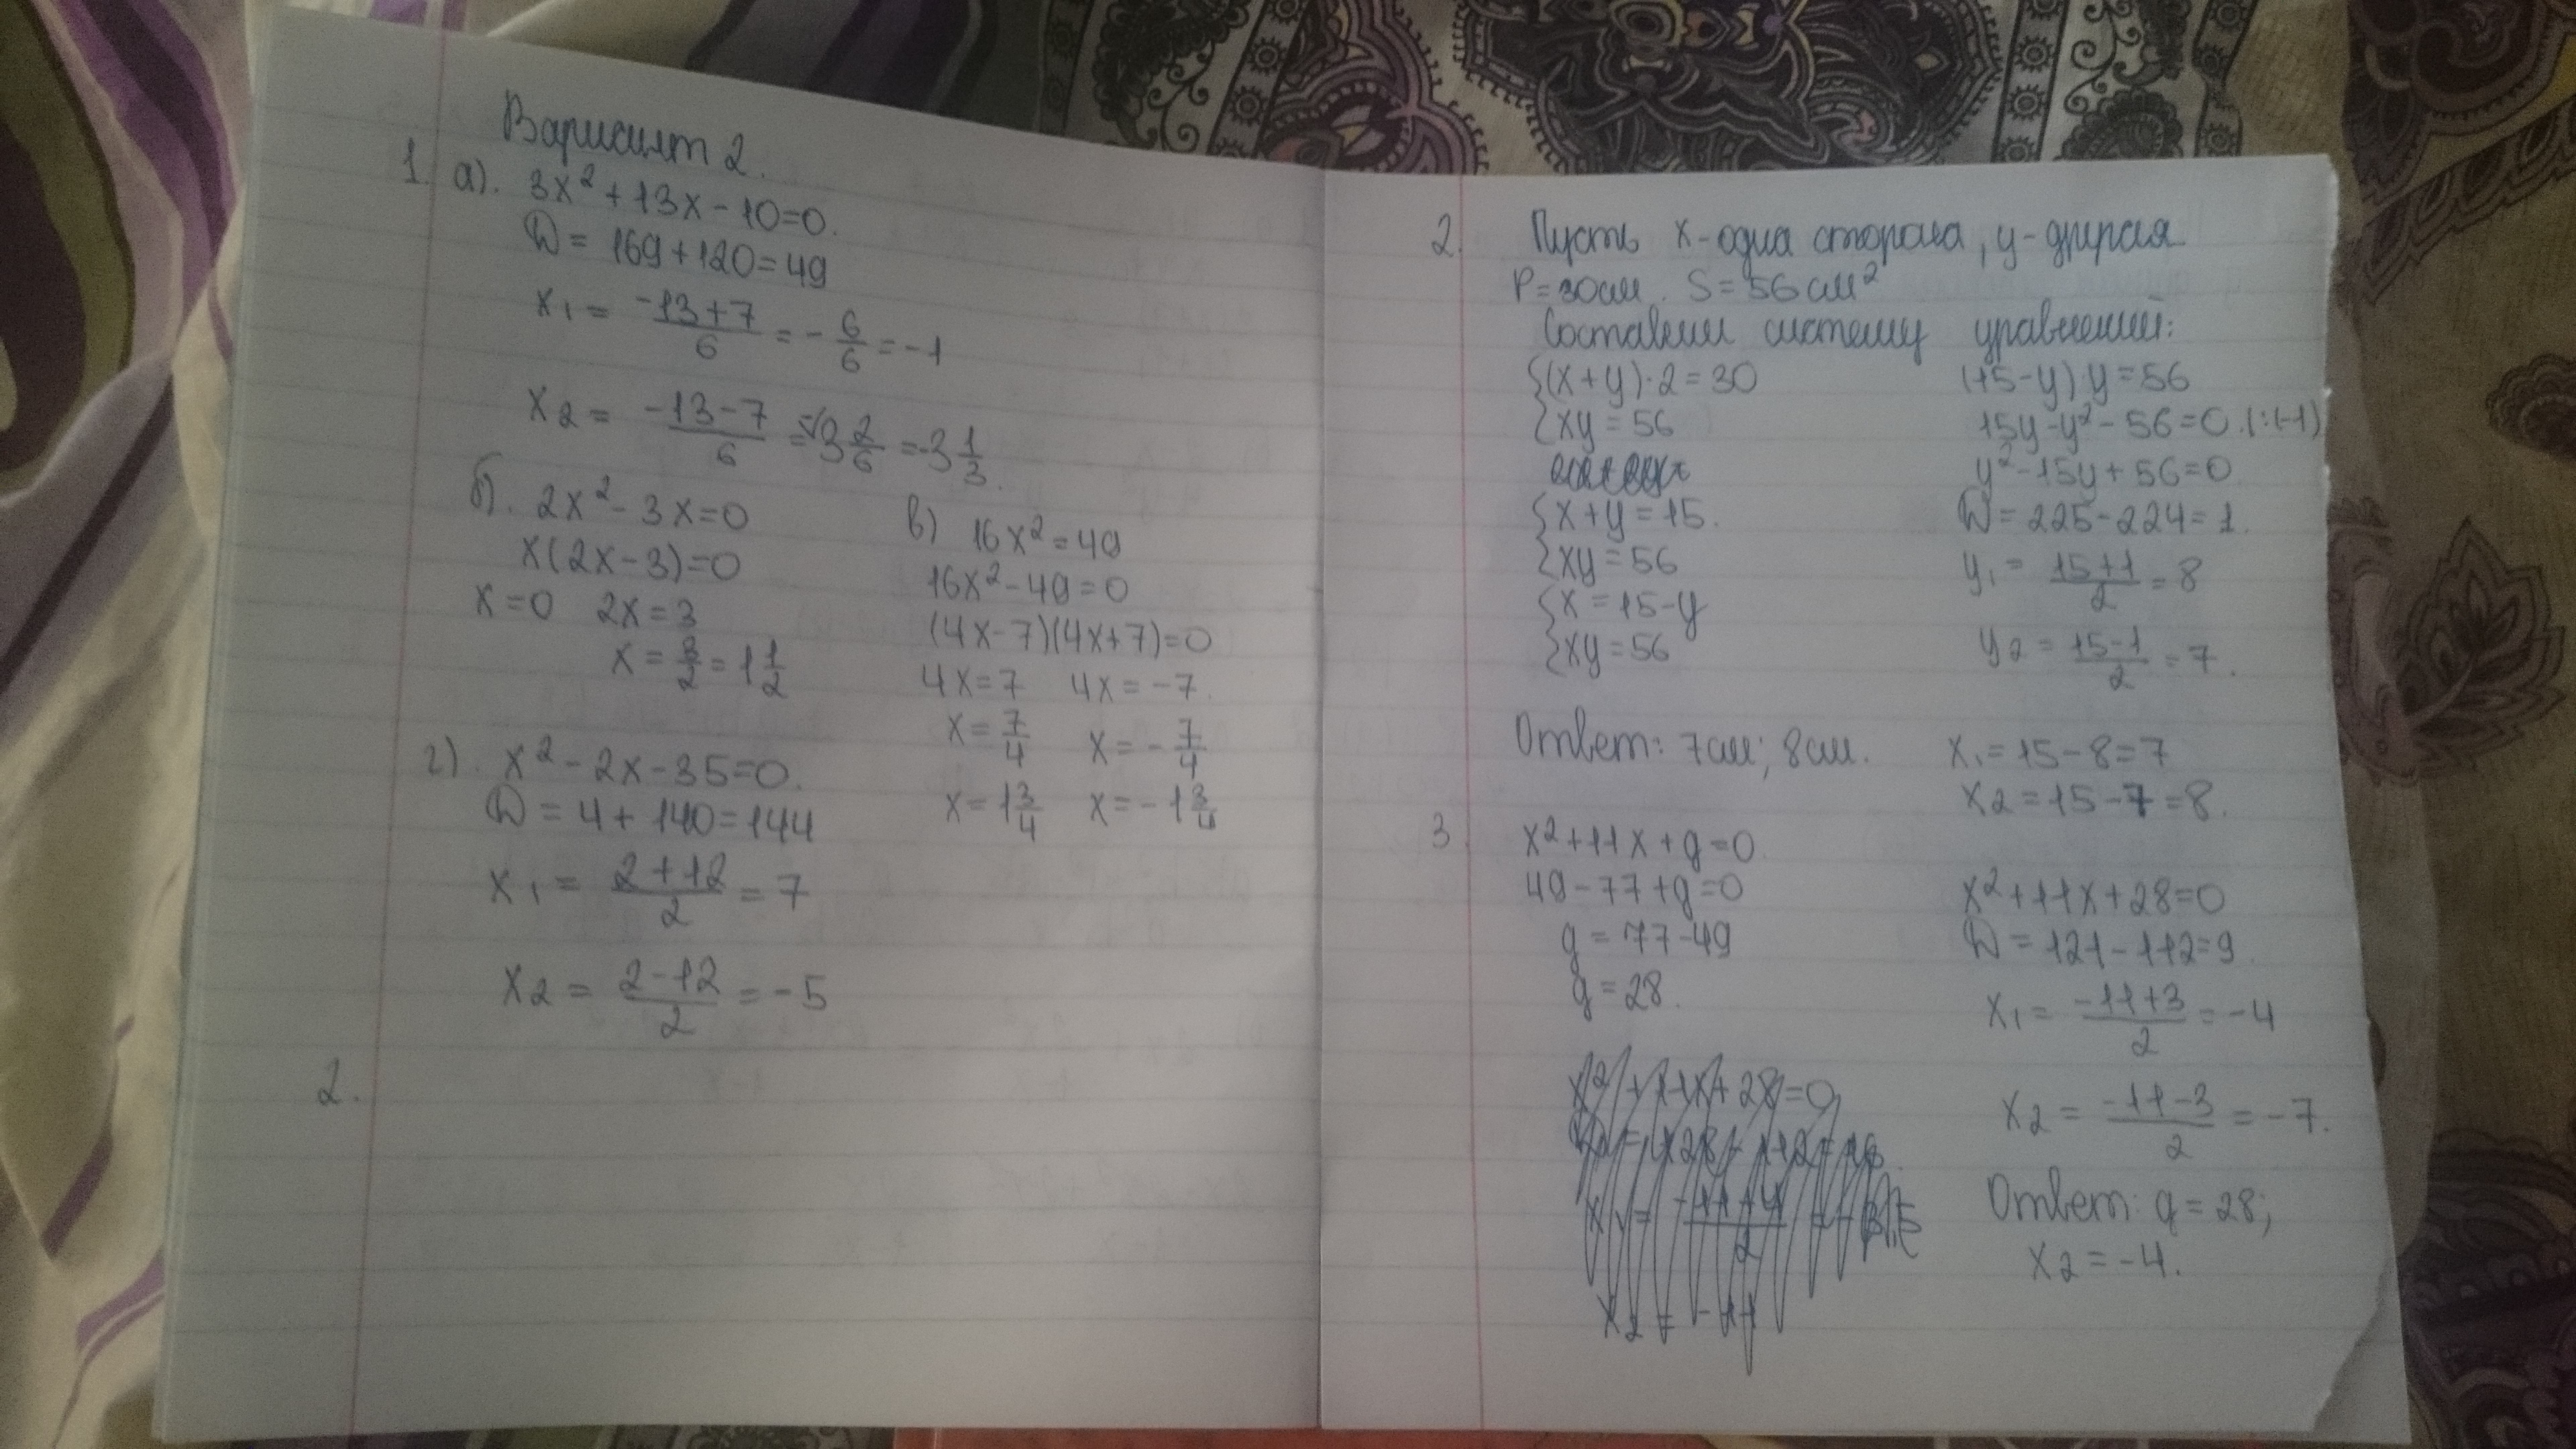 Вариант 2.
1. а). 3x² + 13x - 10 = 0.
D = 169 + 120 = 49
x₁ = (-13+7)/6 = -6/6 = -1
x₂ = (-13-7)/6 = -3 2/6 = -3 1/3.
б). 2x² - 3x = 0
x(2x - 3) = 0
x = 0 2x = 3
x = 3/2 = 1 1/2
в) 16x² = 49
16x² - 49 = 0
(4x-7)(4x+7) = 0
4x = 7 4x = -7.
x = 7/4 x = -7/4
x = 1 3/4 x = -1 3/4
г). x² - 2x - 35 = 0.
D = 4 + 140 = 144
x₁ = (2+12)/2 = 7
x₂ = (2-12)/2 = -5
2.
2. Пусть x-одна сторона, y-другая
P = 30см. S = 56 см²
Составим систему уравнений:
{(x+y)·2 = 30
{xy = 56
{x+y = 15.
{xy = 56
{x = 15-y
{xy = 56
(15-y)y = 56
15y - y² - 56 = 0. (:(-1)
y² - 15y + 56 = 0
D = 225 - 224 = 1.
y₁ = (15+1)/2 = 8
y₂ = (15-1)/2 = 7.
x₁ = 15 - 8 = 7
x₂ = 15 - 7 = 8.
Ответ: 7см; 8см.
3. x² + 11x + q = 0
49 - 77 + q = 0
q = 77 - 49
q = 28.
x² + 11x + 28 = 0
x² + 11x + 28 = 0
D = 121 - 112 = 9.
x₁ = (-11+3)/2 = -4
x₂ = (-11-3)/2 = -7.
Ответ: q = 28;
x₂ = -4.